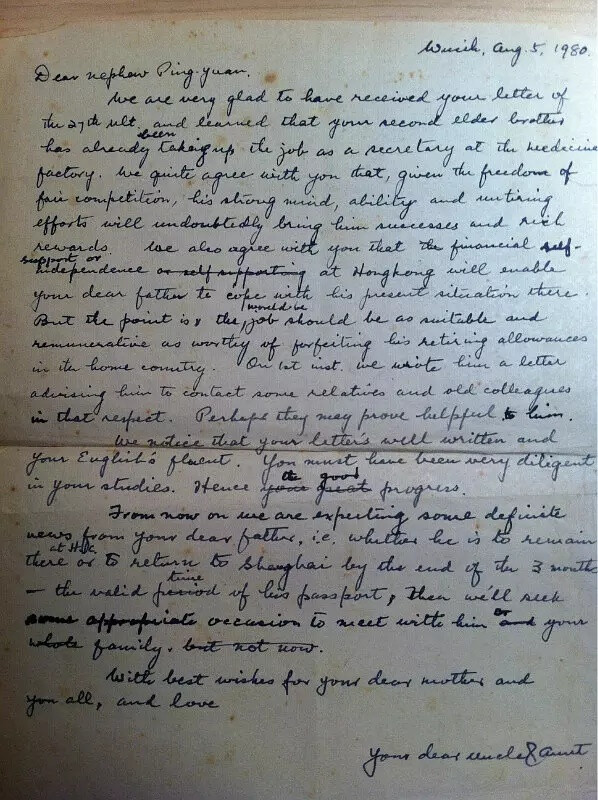 Wusih, Aug. 5, 1980.
Dear nephew Ping-yuan,
We are very glad to have received your letter of
the 27th ult. and learned that your second elder brother
has already been taken up the job as a secretary at the medicine
factory. We quite agree with you that, given the freedom of
fair competition, his strong mind, ability and untiring
efforts will undoubtedly bring him successes and rich
rewards. We also agree with you that the financial self-
support or
independence or self supporting at Hongkong will enable
your dear father to cope with his present situation there.
But the point is, the would be job should be as suitable and
remunerative as worthy of forfeiting his retiring allowances
in the home country. On 1st inst. we wrote him a letter
advising him to contact some relatives and old colleagues
in that respect. Perhaps they may prove helpful to him.
We notice that your letter's well written and
your English's fluent. You must have been very diligent
in your studies. Hence your great the good progress.
From now on we are expecting some definite
news from your dear father, i.e. whether he is to remain
there at H.K. or to return to Shanghai by the end of the 3 months
— the valid period time of his passport, then we'll seek
some appropriate occasion to meet with him and or your
whole family. but not now.
With best wishes for your dear mother and
you all, and love
Your dear uncle & aunt